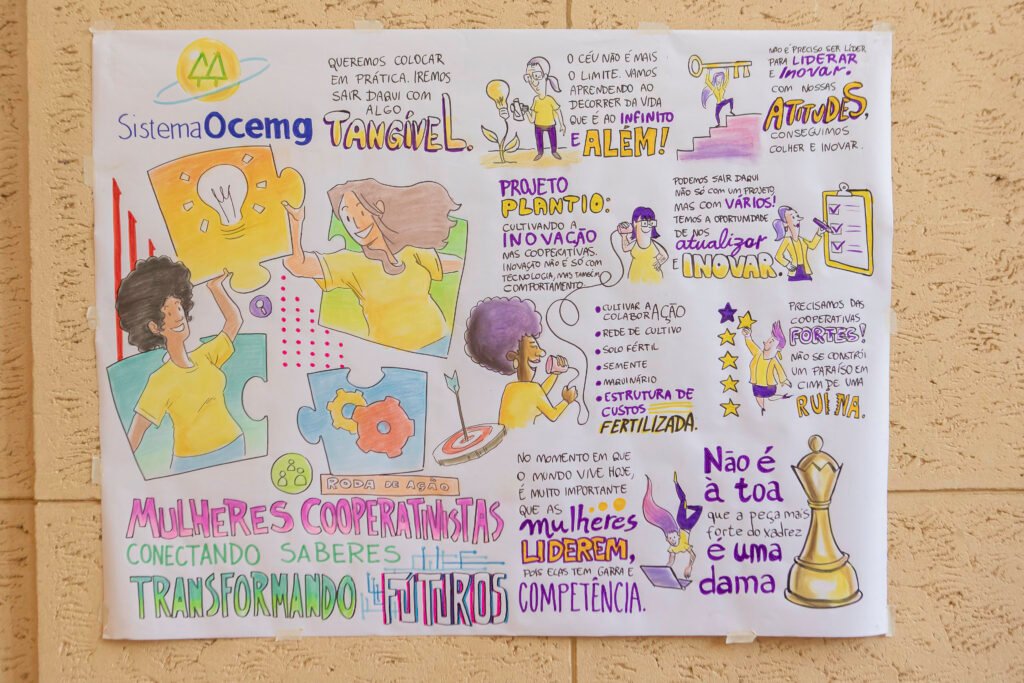 Sistema Ocemg
QUEREMOS COLOCAR
EM PRÁTICA. IREMOS
SAIR DAQUI COM
ALGO
TANGÍVEL.
O CÉU NÃO É MAIS
O LIMITE. VAMOS
APRENDENDO AO
DECORRER DA VIDA
QUE É AO INFINITO
E ALÉM!
NÃO É PRECISO SER LÍDER
PARA LIDERAR
E INOVAR.
COM NOSSAS
ATITUDES,
CONSEGUIMOS
COLHER E INOVAR.
PROJETO
PLANTIO:
CULTIVANDO A
INOVAÇÃO
NAS COOPERATIVAS.
INOVAÇÃO NÃO É SÓ COM
TECNOLOGIA, MAS TAMBÉM
COMPORTAMENTO.
PODEMOS SAIR DAQUI
NÃO SÓ COM UM PROJETO
MAS COM VÁRIOS!
TEMOS A OPORTUNIDADE
DE NOS
atualizar
E INOVAR.
• CULTIVAR A AÇÃO
COLABORAÇÃO
• REDE DE CULTIVO
• SOLO FÉRTIL
• SEMENTE
• MAQUINÁRIO
• ESTRUTURA DE
CUSTOS
FERTILIZADA.
PRECISAMOS DAS
COOPERATIVAS
FORTES!
NÃO SE CONSTRÓI
UM PARAÍSO EM
CIMA DE UMA
RUÍNA.
RODA DE AÇÃO
MULHERES COOPERATIVISTAS
CONECTANDO SABERES
TRANSFORMANDO FUTUROS
NO MOMENTO EM QUE
O MUNDO VIVE HOJE,
É MUITO IMPORTANTE
QUE AS
mulheres
LIDEREM,
POIS ELAS TEM GARRA E
COMPETÊNCIA.
Não é
à toa
que a peça mais
forte do xadrez
é uma
dama